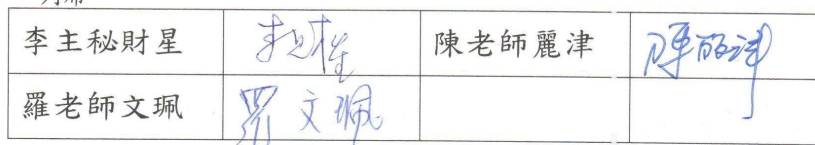 列席
李主秘財星 李財星 陳老師麗津 陳麗津
羅老師文珮 羅文珮